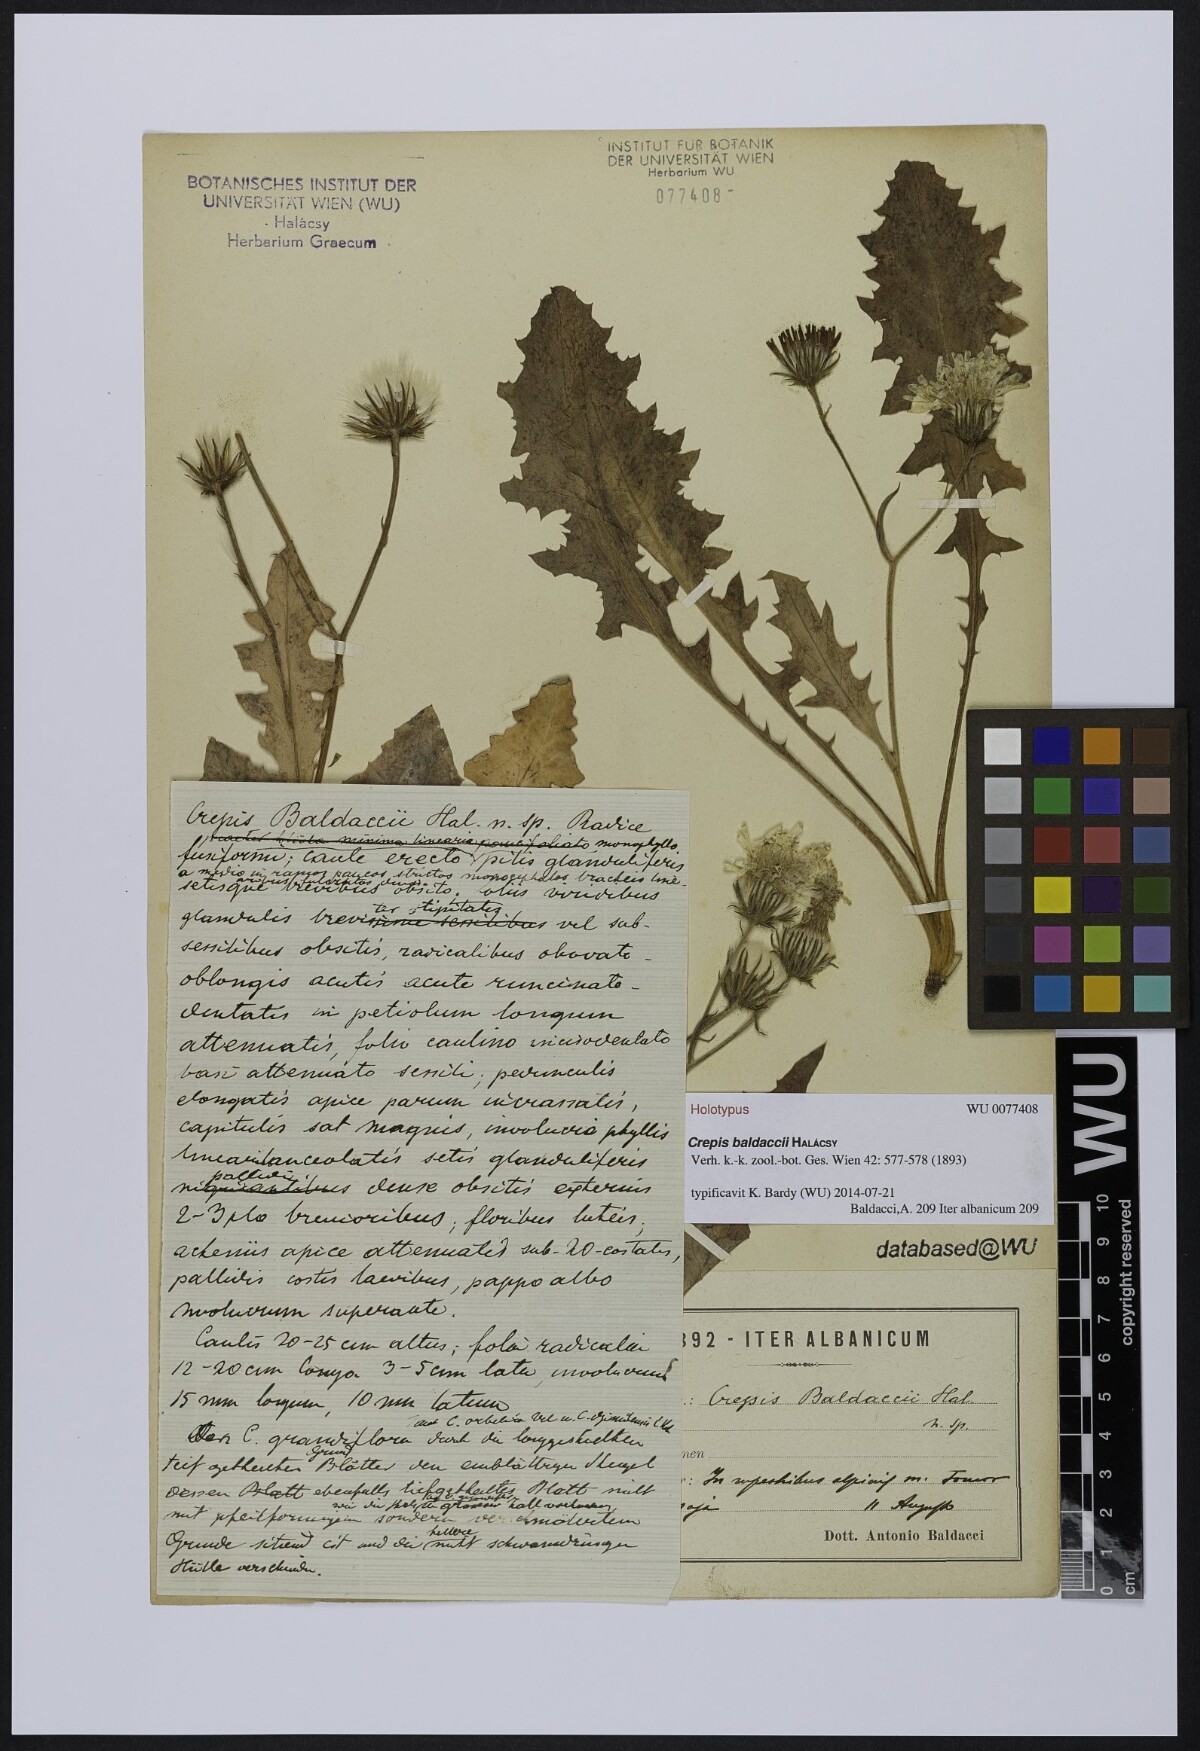 INSTITUT FÜR BOTANIK
DER UNIVERSITÄT WIEN
Herbarium WU
077408
BOTANISCHES INSTITUT DER
UNIVERSITÄT WIEN (WU)
Halácsy
Herbarium Graecum
Crepis Baldaccii Hal. n. sp. Radice
monophyllo
fusiformi; caule erecto pilis glanduliferis
a medio in ramos paucos strictos monocephalos bracteis
setisque brevibus obsito. foliis viridibus
stipitatis
glandulis vel sub-
sessilibus obsitis, radicalibus obovato-
oblongis acutis acute runcinato-
dentatis in petiolum longum
attenuatis, folio caulino inciso dentato
basi attenuato sessili; pedunculis
elongatis apice parum incrassatis,
capitulis sat magnis, involucro phyllis
linearilanceolatis setis glanduliferis
pallidis
dense obsitis externis
2-3plo brevioribus; floribus luteis;
acheniis apice attenuatis sub-20-costatis,
pallidis costis laevibus, pappo albo
involucrum superante.
Caulis 20-25 cm altus; folia radicalia
12-20 cm longa 3-5 cm lata, involucrum
15 mm longum, 10 mm latum
C. orbelica
C. grandiflora durch die langgestielten
Grund
Blätter den einblättrigen Stengel
dessen Blatt ebenfalls Blatt nicht
mit pfeilförmigem sondern
hellere
Grunde sitzend ist und die nicht schwarzdrüsigen
Hülle verschieden.
Holotypus WU 0077408
Crepis baldaccii HALÁCSY
Verh. k.-k. zool.-bot. Ges. Wien 42: 577-578 (1893)
typificavit K. Bardy (WU) 2014-07-21
Baldacci,A. 209 Iter albanicum 209
databased@WU
892 - ITER ALBANICUM
.: Crepis Baldaccii Hal.
n. sp.
men
: In rupestribus alpinis m. Tomor
11 August
Dott. Antonio Baldacci
WU
copyright reserved
0 1 2 3 4 5 6 7 8 9 10
cm